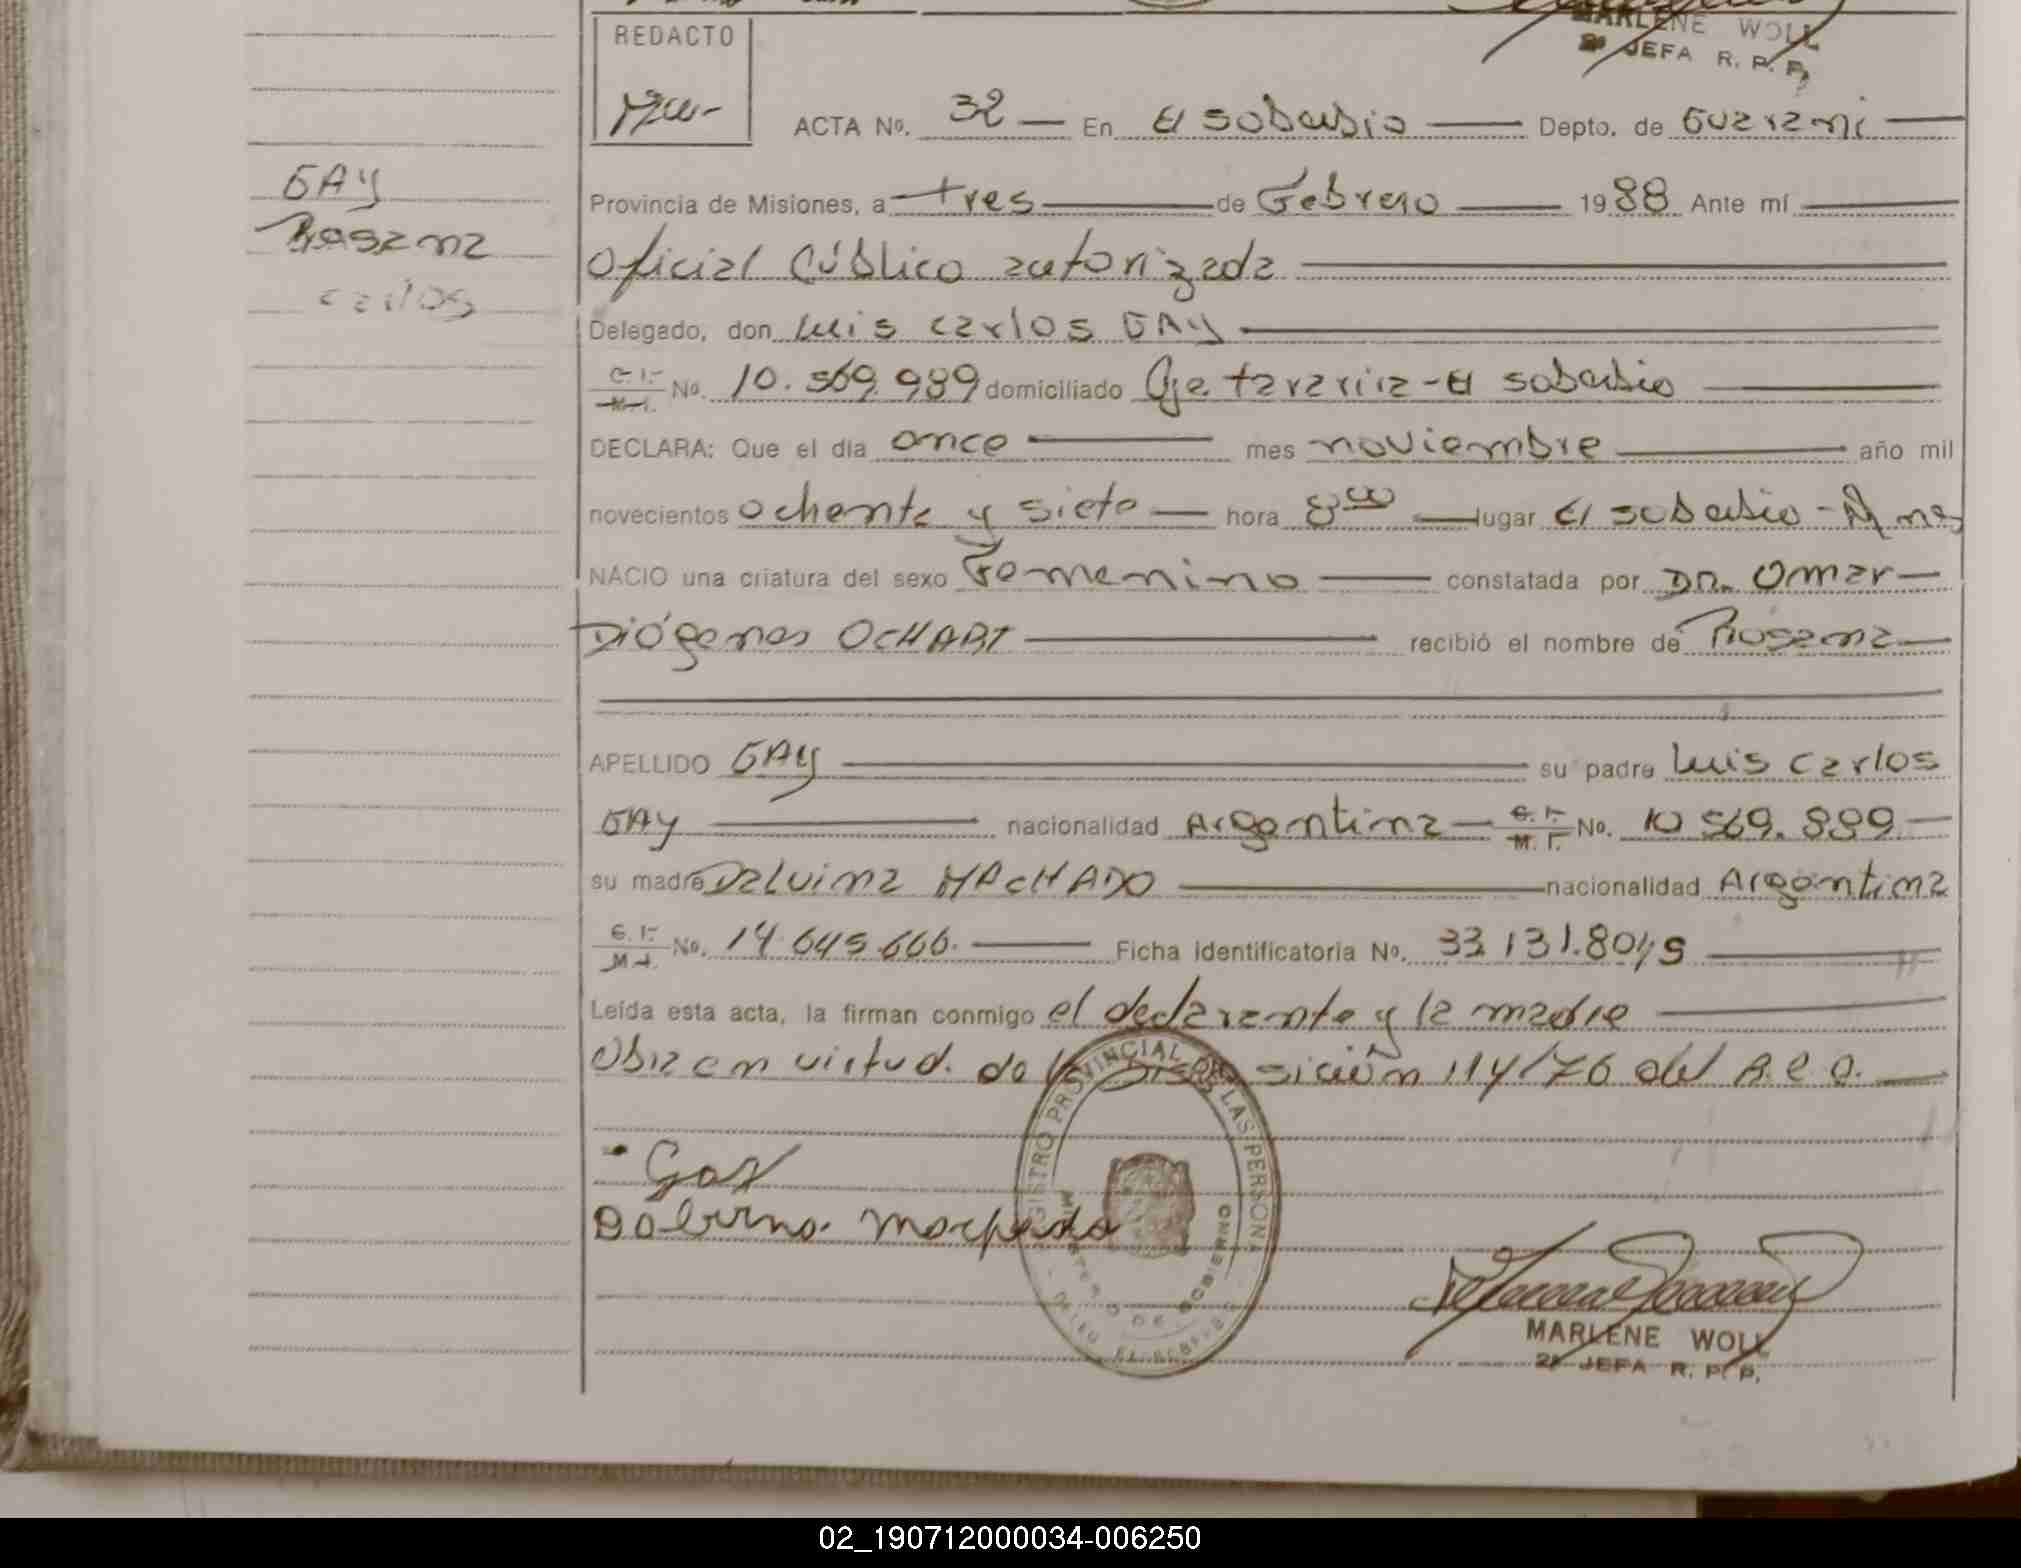 MARLENE WOLL
2ª JEFA R. P. P.
REDACTO
ACTA Nº. 32 En El soberbio Depto. de Guarani
GAY
Provincia de Misiones, a tres de Febrero 1988 Ante mí
Rosana
Oficial Público autorizada
carlos
Delegado, don Luis carlos GAY
C.I. M.I. No. 10.569.989 domiciliado Pje tarairia - El soberbio
DECLARA: Que el día once mes noviembre año mil
novecientos ochenta y siete hora 8 00 lugar El soberbio - Mnes
NACIO una criatura del sexo Femenino constatada por DR. Omar
Diógenes OCHART recibió el nombre de Rosana
APELLIDO GAY su padre Luis carlos
GAY nacionalidad Argentina C.I. M.I. No. 10 569.989
su madre Dalvina MACHADO nacionalidad Argentina
C.I. M.I. No. 14.645.666. Ficha identificatoria No. 33.131.804
Leída esta acta, la firman conmigo el declarante y la madre
Obra en virtud de la Disposición 114/76 del
REGISTRO PROVINCIAL DE LAS PERSONAS
MINISTERIO DE GOBIERNO
EL SOBERBIO
Gay
Dalvina Machado
MARLENE WOLL
2ª JEFA R. P. P.
02_190712000034-006250